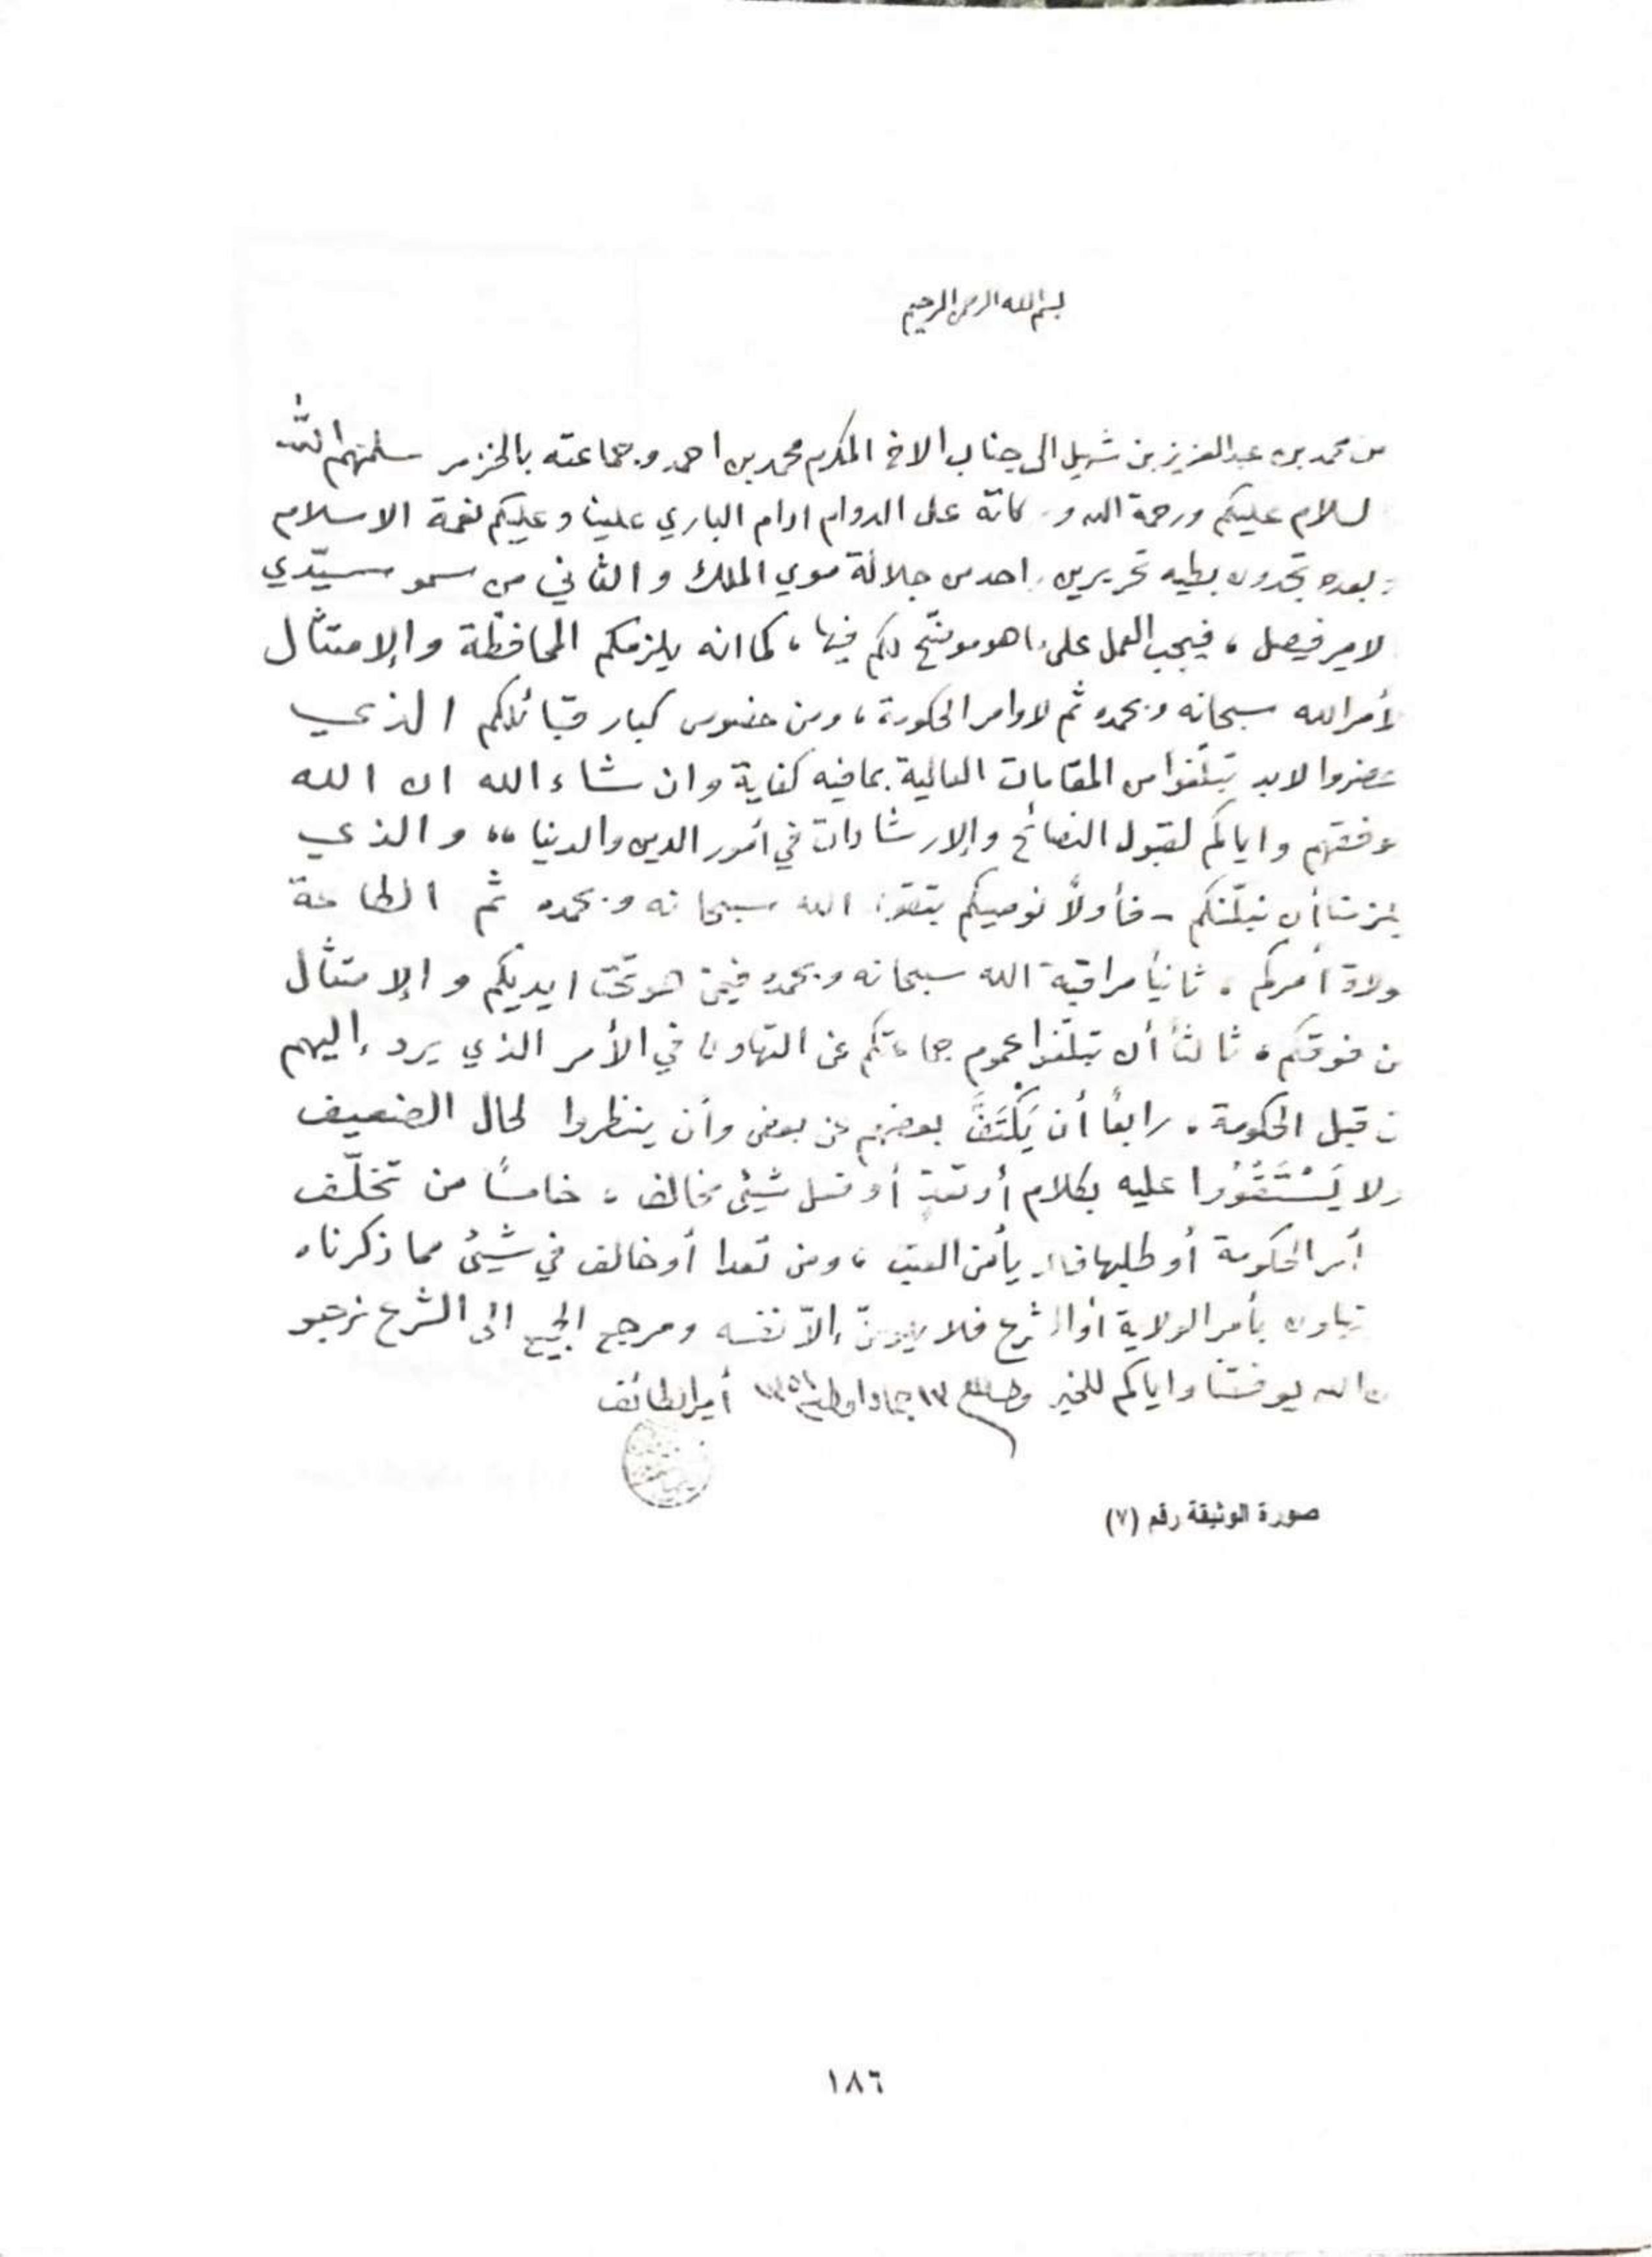 بسم الله الرحمن الرحيم
من محمد بن عبدالعزيز بن شهيل الى جناب الاخ المكرم محمد بن احمد وجماعته بالخزمر سلمهم الله
لسلام عليكم ورحمة الله و كاته على الدوام ادام الباري علينا وعليكم نعمة الاسلام
بعده تجدون بطيه تحريرين احد من جلالة مولاي الملك والثاني من سمو سيّدي
لامير فيصل ، فيجب العمل على ما هو موضّح لكم فيها ، كما انه يلزمكم المحافظة والإمتثال
لأمر الله سبحانه وبحمده ثم لاوامر الحكومة ، ومن خصوص كبار قبائلكم الذي
حضروا لابد تبلّغوا من المقامات العالية بما فيه كفاية وان شاء الله ان الله
وفقهم واياكم لقبول النصائح والإرشادات في أمور الدين والدنيا ،، والذي
يلزمنا أن نبلّغكم - فأولاً نوصيكم بتقوا الله سبحانه وبحمده ثم الطاعة
ولاة أمركم ، ثانياً مراقبة الله سبحانه وبحمده فيمن هو تحت ايديكم والإمتثال
من فوقكم ، ثالثاً أن تبلّغوا عموم جماعتكم عن التهاون في الأمر الذي يرد إليهم
ن قبل الحكومة ، رابعاً أن يَكْتَفَّ بعضهم عن بعض وأن ينظروا لحال الضعيف
ولا يَسْتَقْوُوا عليه بكلام أو تعدٍ أو فعل شيئ مخالف ، خامساً من تخلّف
أمر الحكومة أو طلبها فلا يأمن العتب ، ومن تعدا أو خالف في شيئ مما ذكرناه
تهاون بأمر الولاية أو الشرع فلا يلومنّ إلاّ نفسه ومرجع الجميع الى الشرع نرجو
الله يوفقنا واياكم للخير ١٣ جماد ١٣٥١ أمير الطائف
صورة الوثيقة رقم (٧)
١٨٦